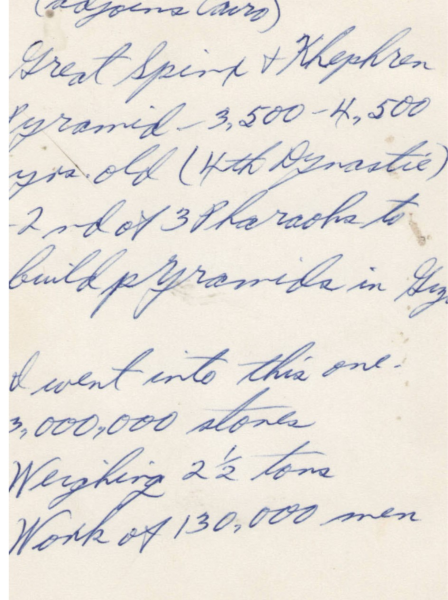 (adjoins Cairo)
Great Spinx & Khephren
Pyramid - 3,500 - 4,500
yrs. old (4th Dynastie)
- 2nd of 3 Pharaohs to
build pyramids in Giz
I went into this one.
3,000,000 stones
Weighing 2 1/2 tons
Work of 130,000 men